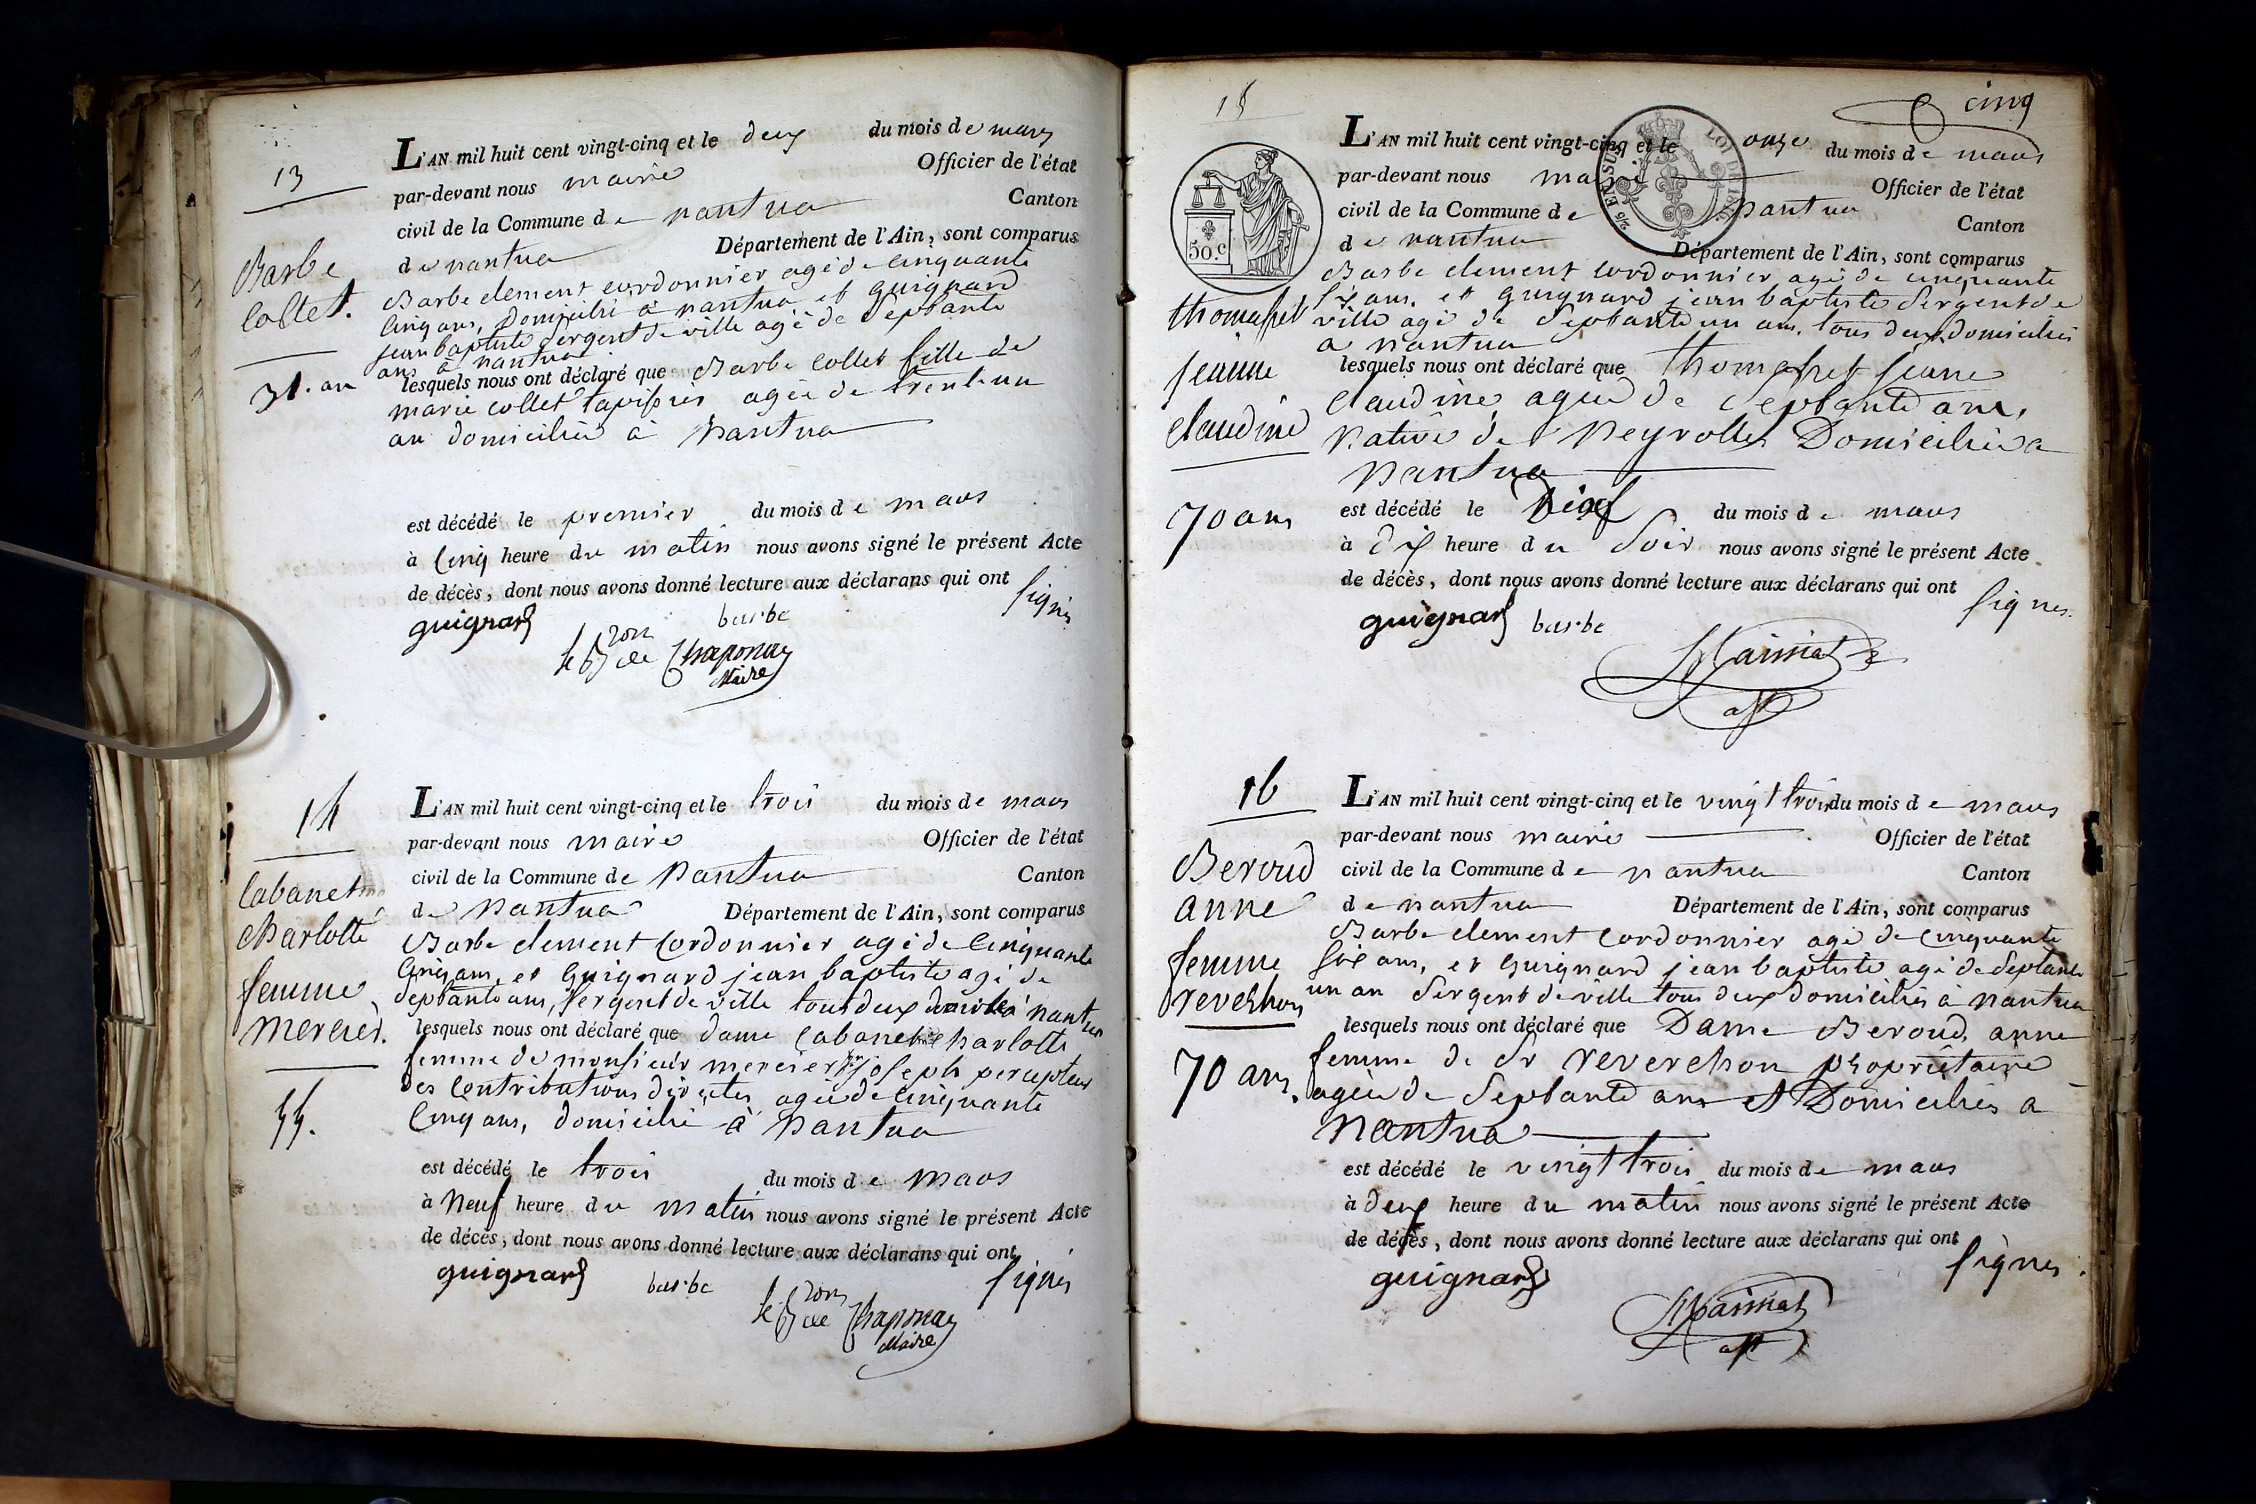 13
L'AN mil huit cent vingt-cinq et le deux du mois de mars
par-devant nous maire Officier de l'état
civil de la Commune de nantua Canton
de nantua Département de l'Ain, sont comparus
Barbe clement cordonnier agé de cinquante
cinq ans, domicilié à nantua et guignard
jean baptiste sergent de ville agé de septante
ans à nantua
lesquels nous ont déclaré que Barbe collet fille de
marie collet agée de trente un
an domiciliée à Nantua
est décédé le premier du mois de mars
à cinq heure du matin nous avons signé le présent Acte
de décès, dont nous avons donné lecture aux déclarans qui ont
signés
guignard barbe
le Bon de Chaponay
Maire
Barbe
Collet.
31. an
14
L'AN mil huit cent vingt-cinq et le trois du mois de mars
par-devant nous maire Officier de l'état
civil de la Commune de Nantua Canton
de Nantua Département de l'Ain, sont comparus
Barbe clement cordonnier agé de cinquante
cinq ans, et Guignard jean baptiste agé de
septante ans, sergent de ville tous deux à nantua
lesquels nous ont déclaré que dame Cabanet charlotte
femme de monsieur mercier joseph percepteur
des contributions directes agée de cinquante
cinq ans, domicilié à Nantua
est décédé le trois du mois de mars
à Neuf heure du matin nous avons signé le présent Acte
de décès, dont nous avons donné lecture aux déclarans qui ont
signés
guignard barbe
le Bon de Chaponay
Maire
Cabanet
charlotte
femme
mercier.
55.
cinq
15
L'AN mil huit cent vingt-cinq et le onze du mois de mars
par-devant nous maire Officier de l'état
civil de la Commune de Nantua Canton
de nantua Département de l'Ain, sont comparus
Barbe clement cordonnier agé de cinquante
six ans, et guignard jean baptiste sergent de
ville agé de septante un an, tous deux domiciliés
a nantua
lesquels nous ont déclaré que thomasset jeane
claudine agée de septante ans,
native de Neyrolles Domiciliée a
Nantua
est décédé le Dix du mois de mars
à dix heure du soir nous avons signé le présent Acte
de décès, dont nous avons donné lecture aux déclarans qui ont
signés.
guignard barbe
50.c
LOI DE
EN SUS
thomasset
jeanne
claudine
70 ans
16
L'AN mil huit cent vingt-cinq et le vingt trois du mois de mars
par-devant nous maire Officier de l'état
civil de la Commune de nantua Canton
de nantua Département de l'Ain, sont comparus
Barbe clement cordonnier agé de cinquante
six ans, et Guignard jean baptiste agé de septante
un an sergent de ville tous deux domiciliés à nantua
lesquels nous ont déclaré que Dame Beroud, anne
femme de Sr reverchon propriétaire
agée de septante ans et Domiciliés a
Nantua
est décédé le vingt trois du mois de mars
à deux heure du matin nous avons signé le présent Acte
de décès, dont nous avons donné lecture aux déclarans qui ont
signés.
guignard
Beroud
anne
femme
reverchon
70 ans.